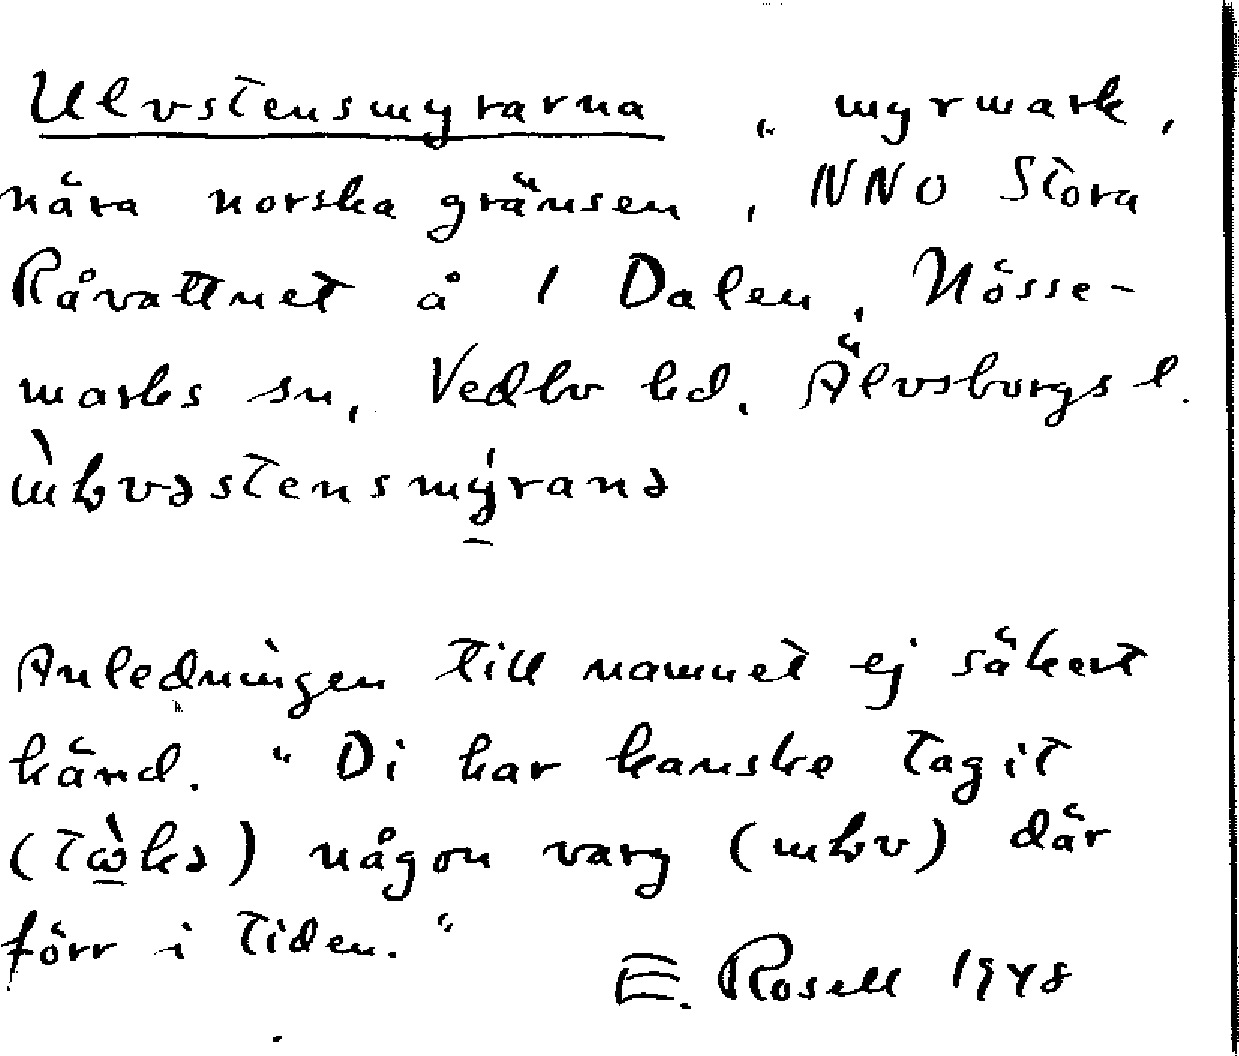 Ulvstensmyrarna „ myrmark,
nära norska gränsen, NNO Stora
Råvattnet å 1 Dalen, Nösse-
marks sn, Vedbo hd. Älvsborgs l.
Anledningen till namnet ej säkert
känd. "Di har kanske tagit
(tὼkə) någon varg (ɯɫv) där
förr i tiden."
E. Rosell 1948